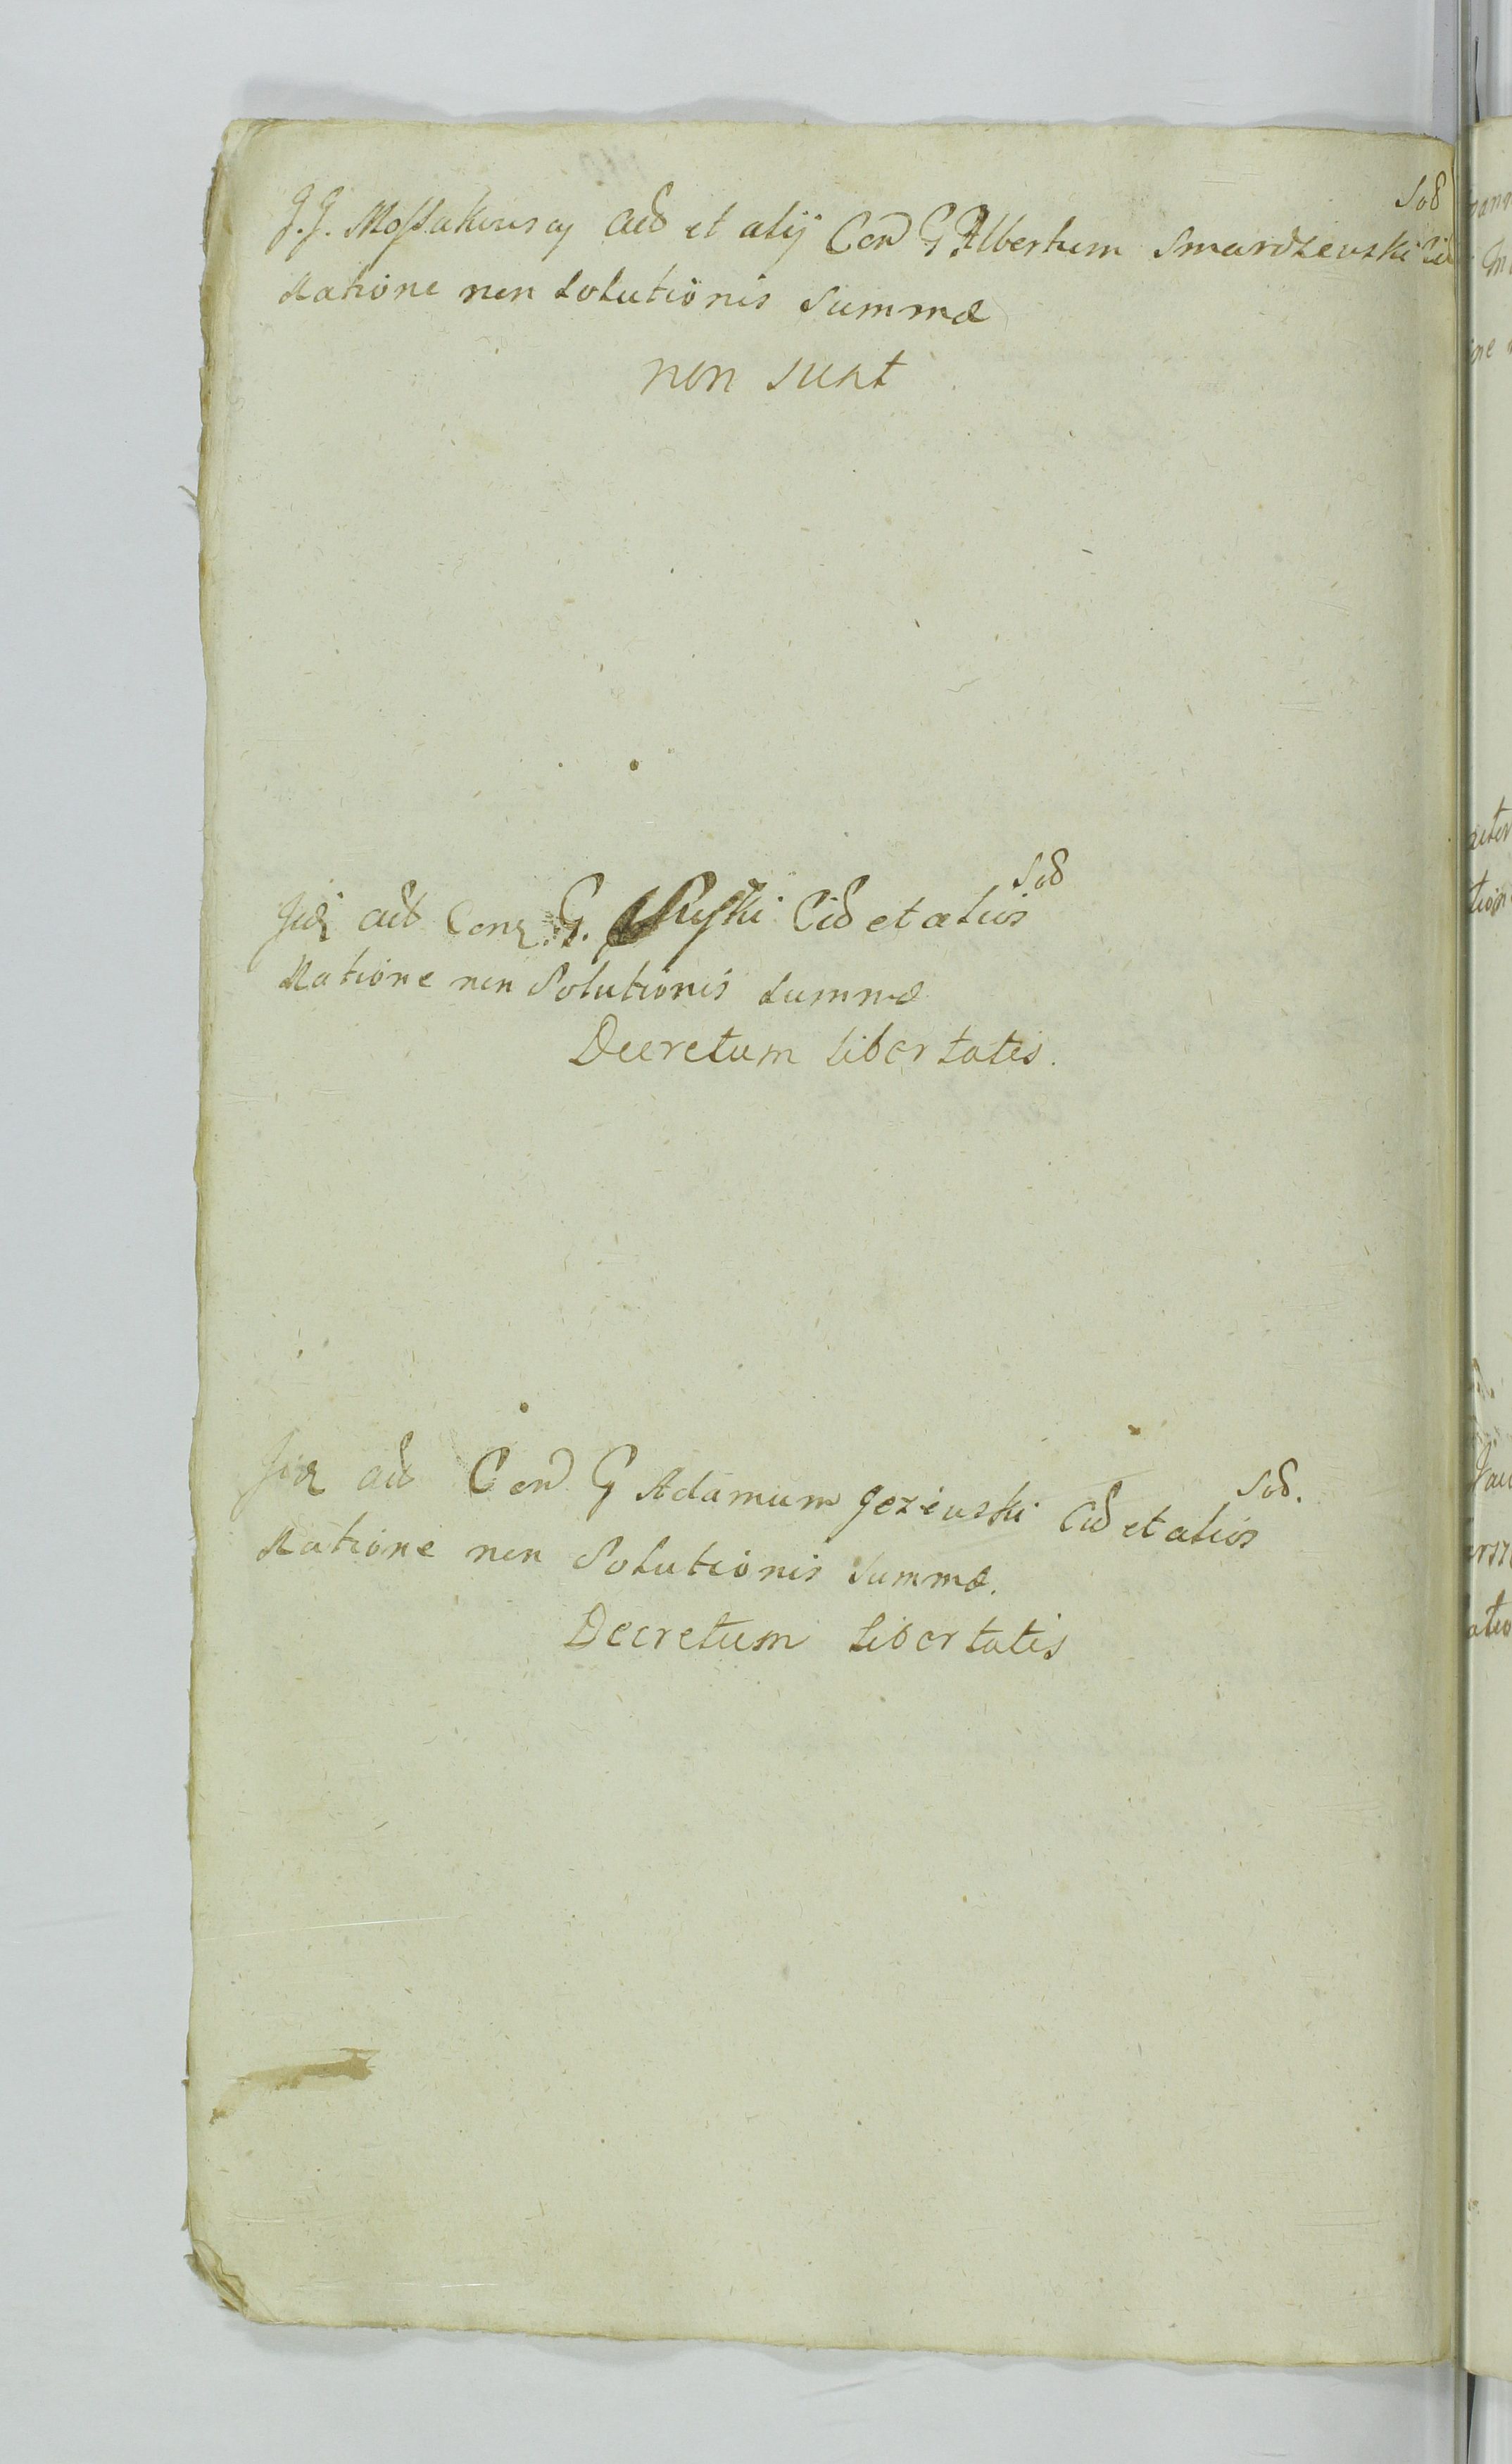 Sod
G. G. Mossakowscy Acd et alij Con G Albertum Smardzewski Cid
Ratione non Solutionis Summæ
non sunt
Sod
Iid act Con G. Ruski Cid et alios
Ratione non Solutionis Summæ
Decretum libertatis.
Sod.
Iid act Con G Adamum Jezewski Cid et alios
Ratione non Solutionis Summæ.
Decretum libertatis